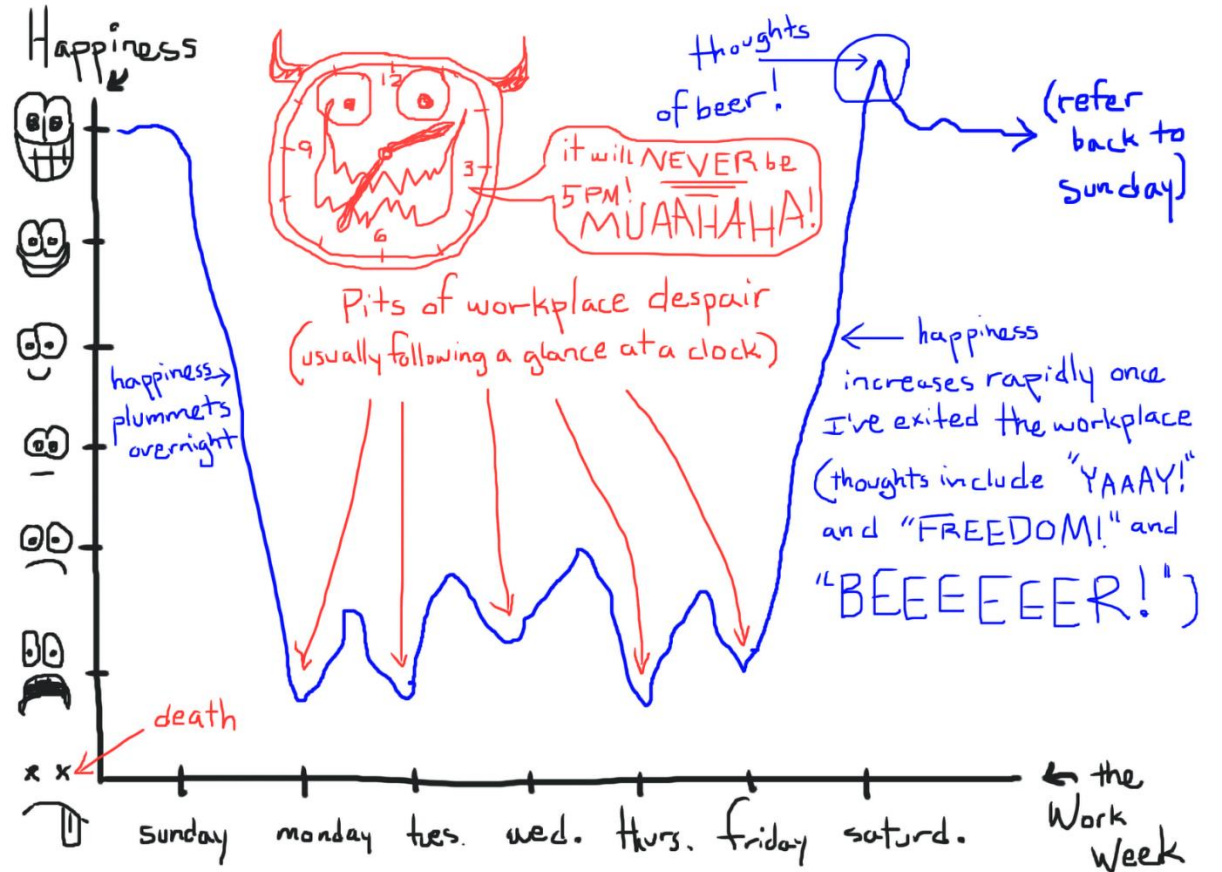 Happiness
thoughts
of beer!
(refer
back to
sunday)
12
9
3
6
it will NEVER be
5 PM!
MUAAHAHA!
Pits of workplace despair
(usually following a glance at a clock)
happiness
plummets
overnight
happiness
increases rapidly once
I've exited the workplace
(thoughts include "YAAAY!"
and "FREEDOM!" and
"BEEEEEER!")
death
sunday
monday
tues.
wed.
thurs.
friday
saturd.
the
Work
Week